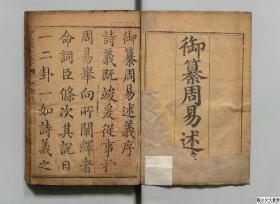 御纂周易述
御纂周易述義序
詩義既竣爰從事於
周易舉向所闡繹者
命詞臣條次其說日
一二卦一如詩義之